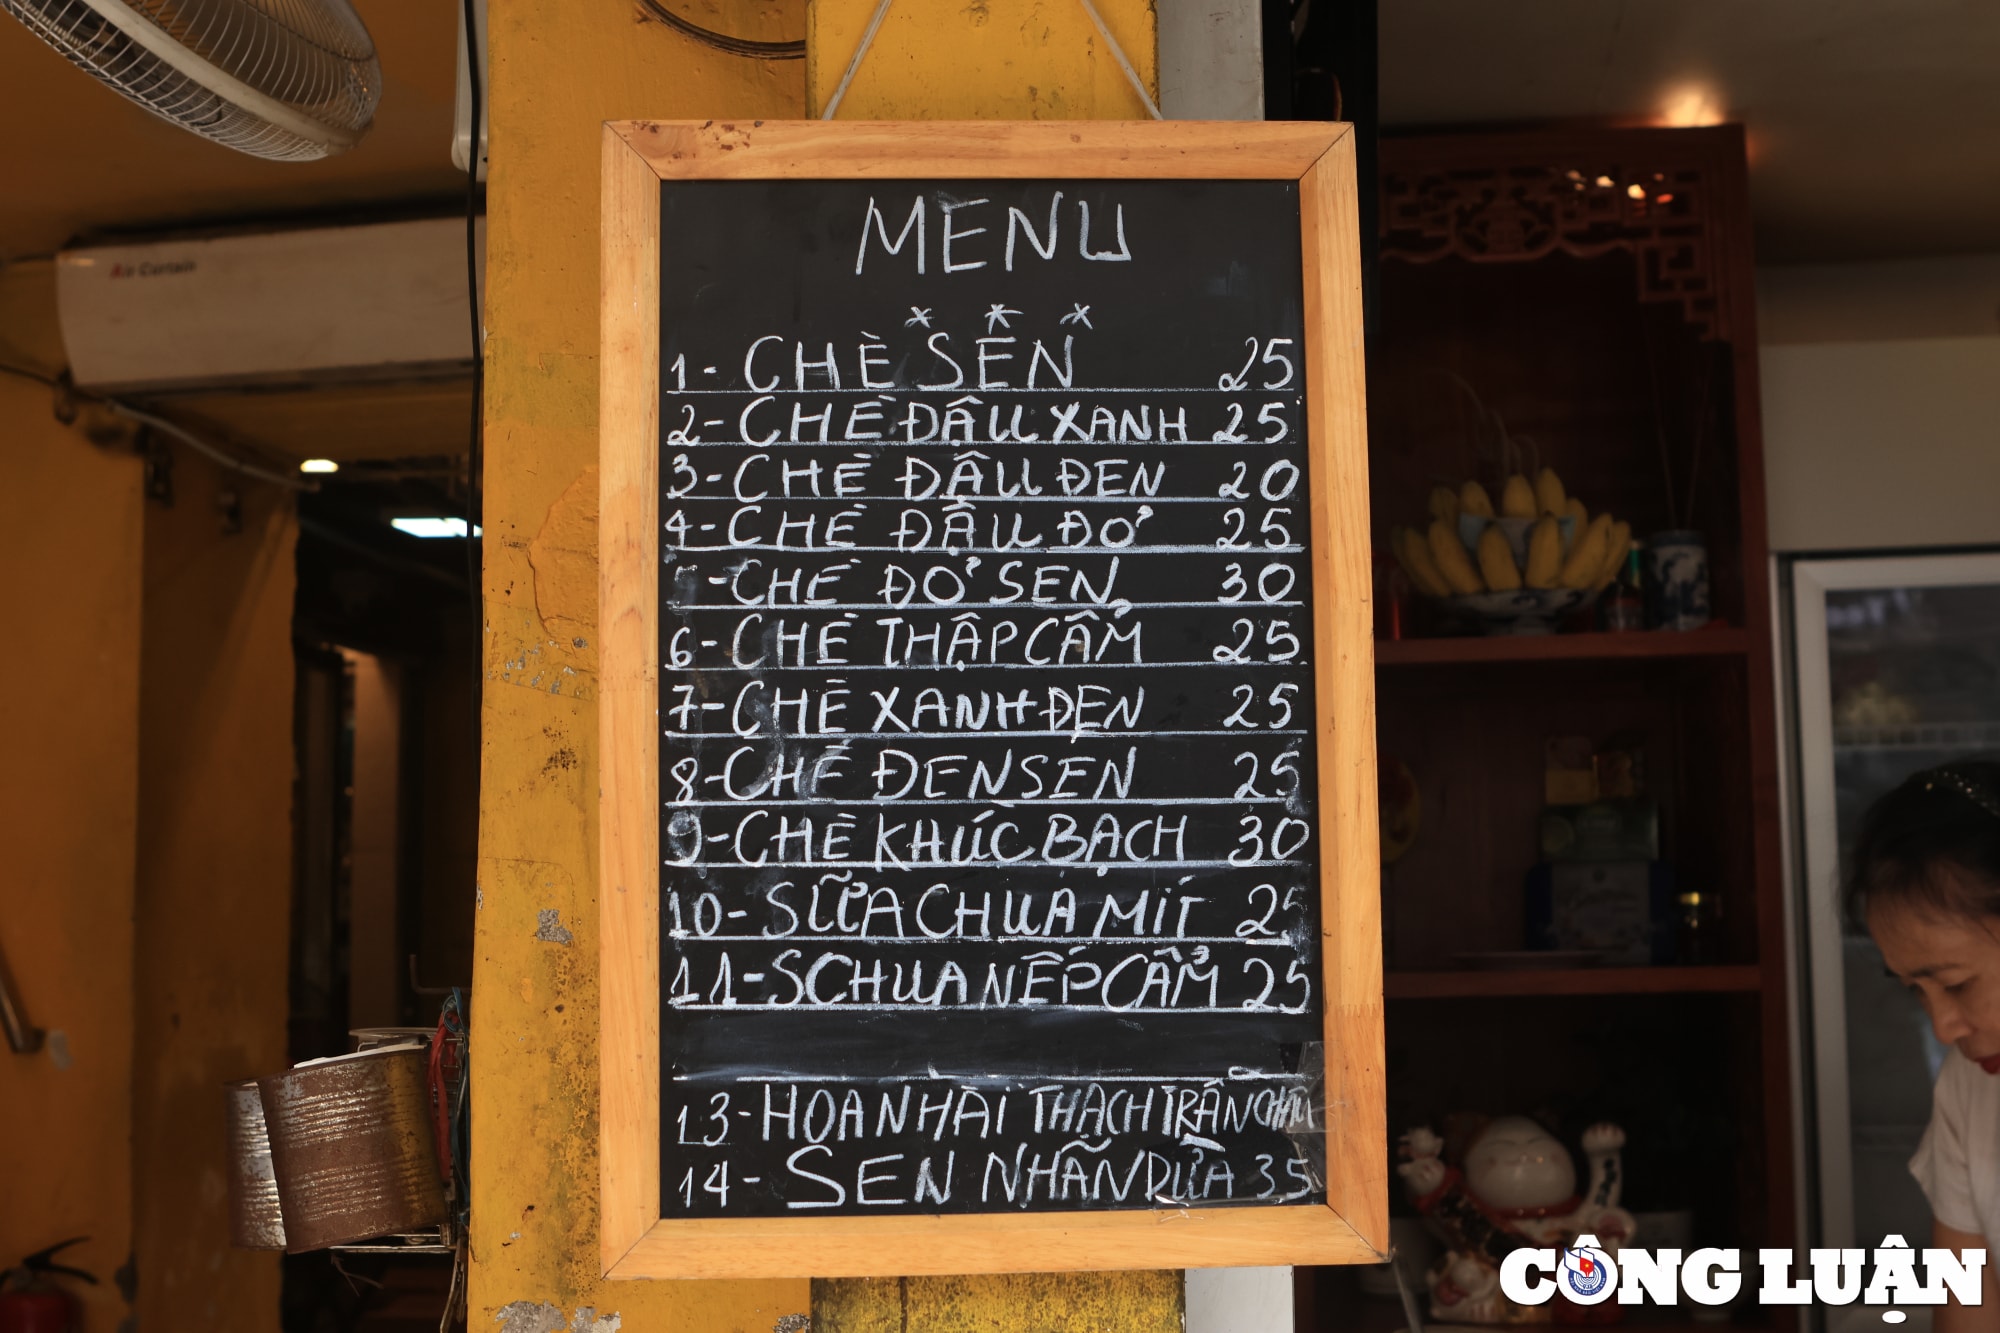 Air Curtain
MENU
* * *
1- CHÈ SEN 25
2- CHÈ ĐẬU XANH 25
3- CHÈ ĐẬU ĐEN 20
4- CHÈ ĐẬU ĐỎ 25
-CHÈ ĐỎ SEN 30
6- CHÈ THẬP CẨM 25
7- CHÈ XANH ĐEN 25
8- CHÈ ĐEN SEN 25
9- CHÈ KHÚC BẠCH 30
10- SỮA CHUA MÍT 25
11- SCHUA NẾP CẨM 25
13- HOA NHÀI THẠCH TRÂN CHÂU
14- SEN NHÃN DỪA 35
CÔNG LUẬN